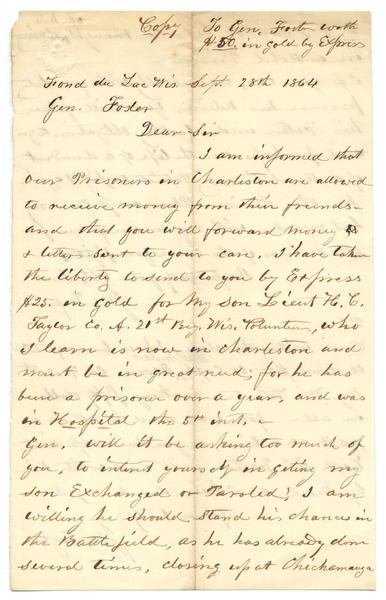 Copy
To Gen. Foster with
$50. in gold by Express
Fond du Lac Wis Sept. 28th 1864
Gen. Foster
Dear Sir
I am informed that
our Prisoners in Charleston are allowed
to receive money from their friends
and that you will forward money
& letters sent to your care. I have taken
the liberty to send to you by Express
$25. in gold for my son Lieut H. C.
Taylor Co. A. 21st Reg. Wis. Volunteer, who
I learn is now in Charleston and
must be in great need; for he has
been a prisoner over a year, and was
in Hospital the 5th inst. –
Gen. will it be asking too much of
you, to interest yourself in geting my
son Exchanged or Paroled; I am
willing he should stand his chances in
the Battlefield, as he has already done
several times, closing up at Chickamauga